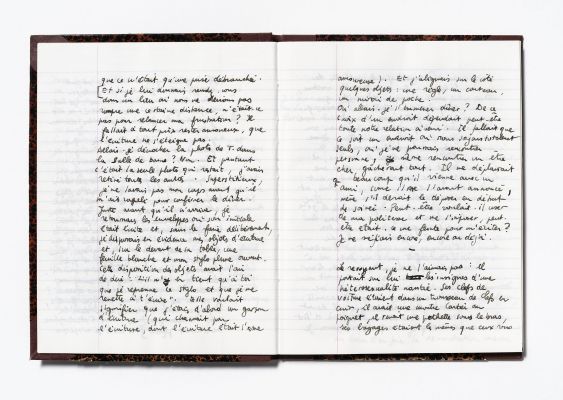 que ce n'était qu'une prise débranchée.
Et si je lui donnais rendez-vous
dans un lieu où nous ne devions pas
rompre une certaine distance, n'était-ce
pas pour relancer ma frustration ? Il
fallait à tout prix rester amoureux, que
l'écriture ne s'éteigne pas.
Allais-je décrocher la photo de T. dans
la salle de bains ? Non. Et pourtant
c'était la seule photo qui restait, j'avais
retiré toutes les autres.
je ne lavais pas mon corps avant qu'il
m'ait rappelé pour confirmer le dîner.
Juste avant qu'il n'arrive, je
les enveloppes où son initiale
était écrite et, sans le faire délibérément,
je disposais en évidence mes objets d'écriture
et, sur le devant de la table, une
feuille blanche et mon stylo plume ouvert.
Cette disposition des objets avait l'air
de dire : "Il n'y en tient qu'à toi
que je reprenne le stylo et que je me
remette à t'écrire". Elle voulait
signifier que j'étais d'abord un garçon
d'écriture, qui charmait par
l'écriture, dont l'écriture était l'arme
amoureuse). Et j'alignais sur le côté
quelques objets : une règle, un couteau,
un miroir de poche.
Où allais-je l'emmener dîner ? De ce
choix d'un endroit dépendait peut-être
toute notre relation à venir. Il fallait que
ce soit un endroit où nous soyons totalement
seuls, où je ne pourrais rencontrer
personne, même rencontrer un être
cher gâcherait tout. Il me déplairait
beaucoup qu'il vienne avec un
ami, comme il me l'avait annoncé,
même s'il devait le déposer en début
de soirée. Peut-être voulait-il user
de ma politesse et ne s'infliger, peut-
être était-ce une feinte pour m'éviter ?
Je ne savais encore, encore au déjà.
Le revoyant, je ne l'aimais pas : il
portait sur lui les insignes d'une
hétérosexualité navrée. Ses clefs de
voiture étaient dans un trousseau de clefs en
cuir, il avait une montre Cartier au
poignet, il tenait une pochette sous le bras,
ses bagages étaient les mêmes que ceux